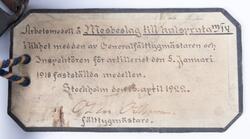 Arbetsmodell å Niesbeslag till halsputa m/IV
i likhet med den av Generalfälttygmästaren och
Inspektören för artilleriet den 5. Januari
1918 fastställda modellen.
Stockholm den april 1922.
Fälttygmästare.